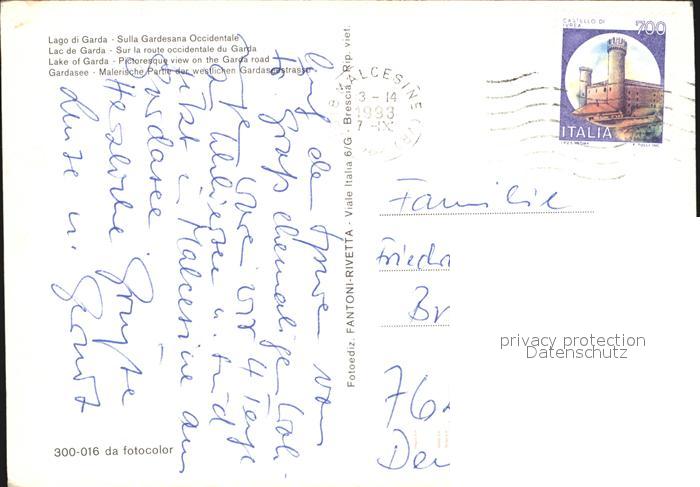 Lago di Garda - Sulla Gardesana Occidentale
Lac de Garda - Sur la route occidentale du Garda
Lake of Garda - Picturesque view on the Garda road
Gardasee - Malerische Partie der westlichen Gardaseestrasse
Auf den Spuren von
ehemaligen
wir 4 Tage
u. sind
jetzt in Malcesine am
Gardasee
Herzliche Grüße
Luise u. Gernot
300-016 da fotocolor
Fotoediz. FANTONI-RIVETTA - Viale Italia 6/G - Brescia - Rip. viet.
MALCESINE (VR)
3 - 14
1993
7 - IX
CASTELLO DI
IVREA
700
ITALIA
Familie
Friedr
Br
76
Deu
privacy protection
Datenschutz